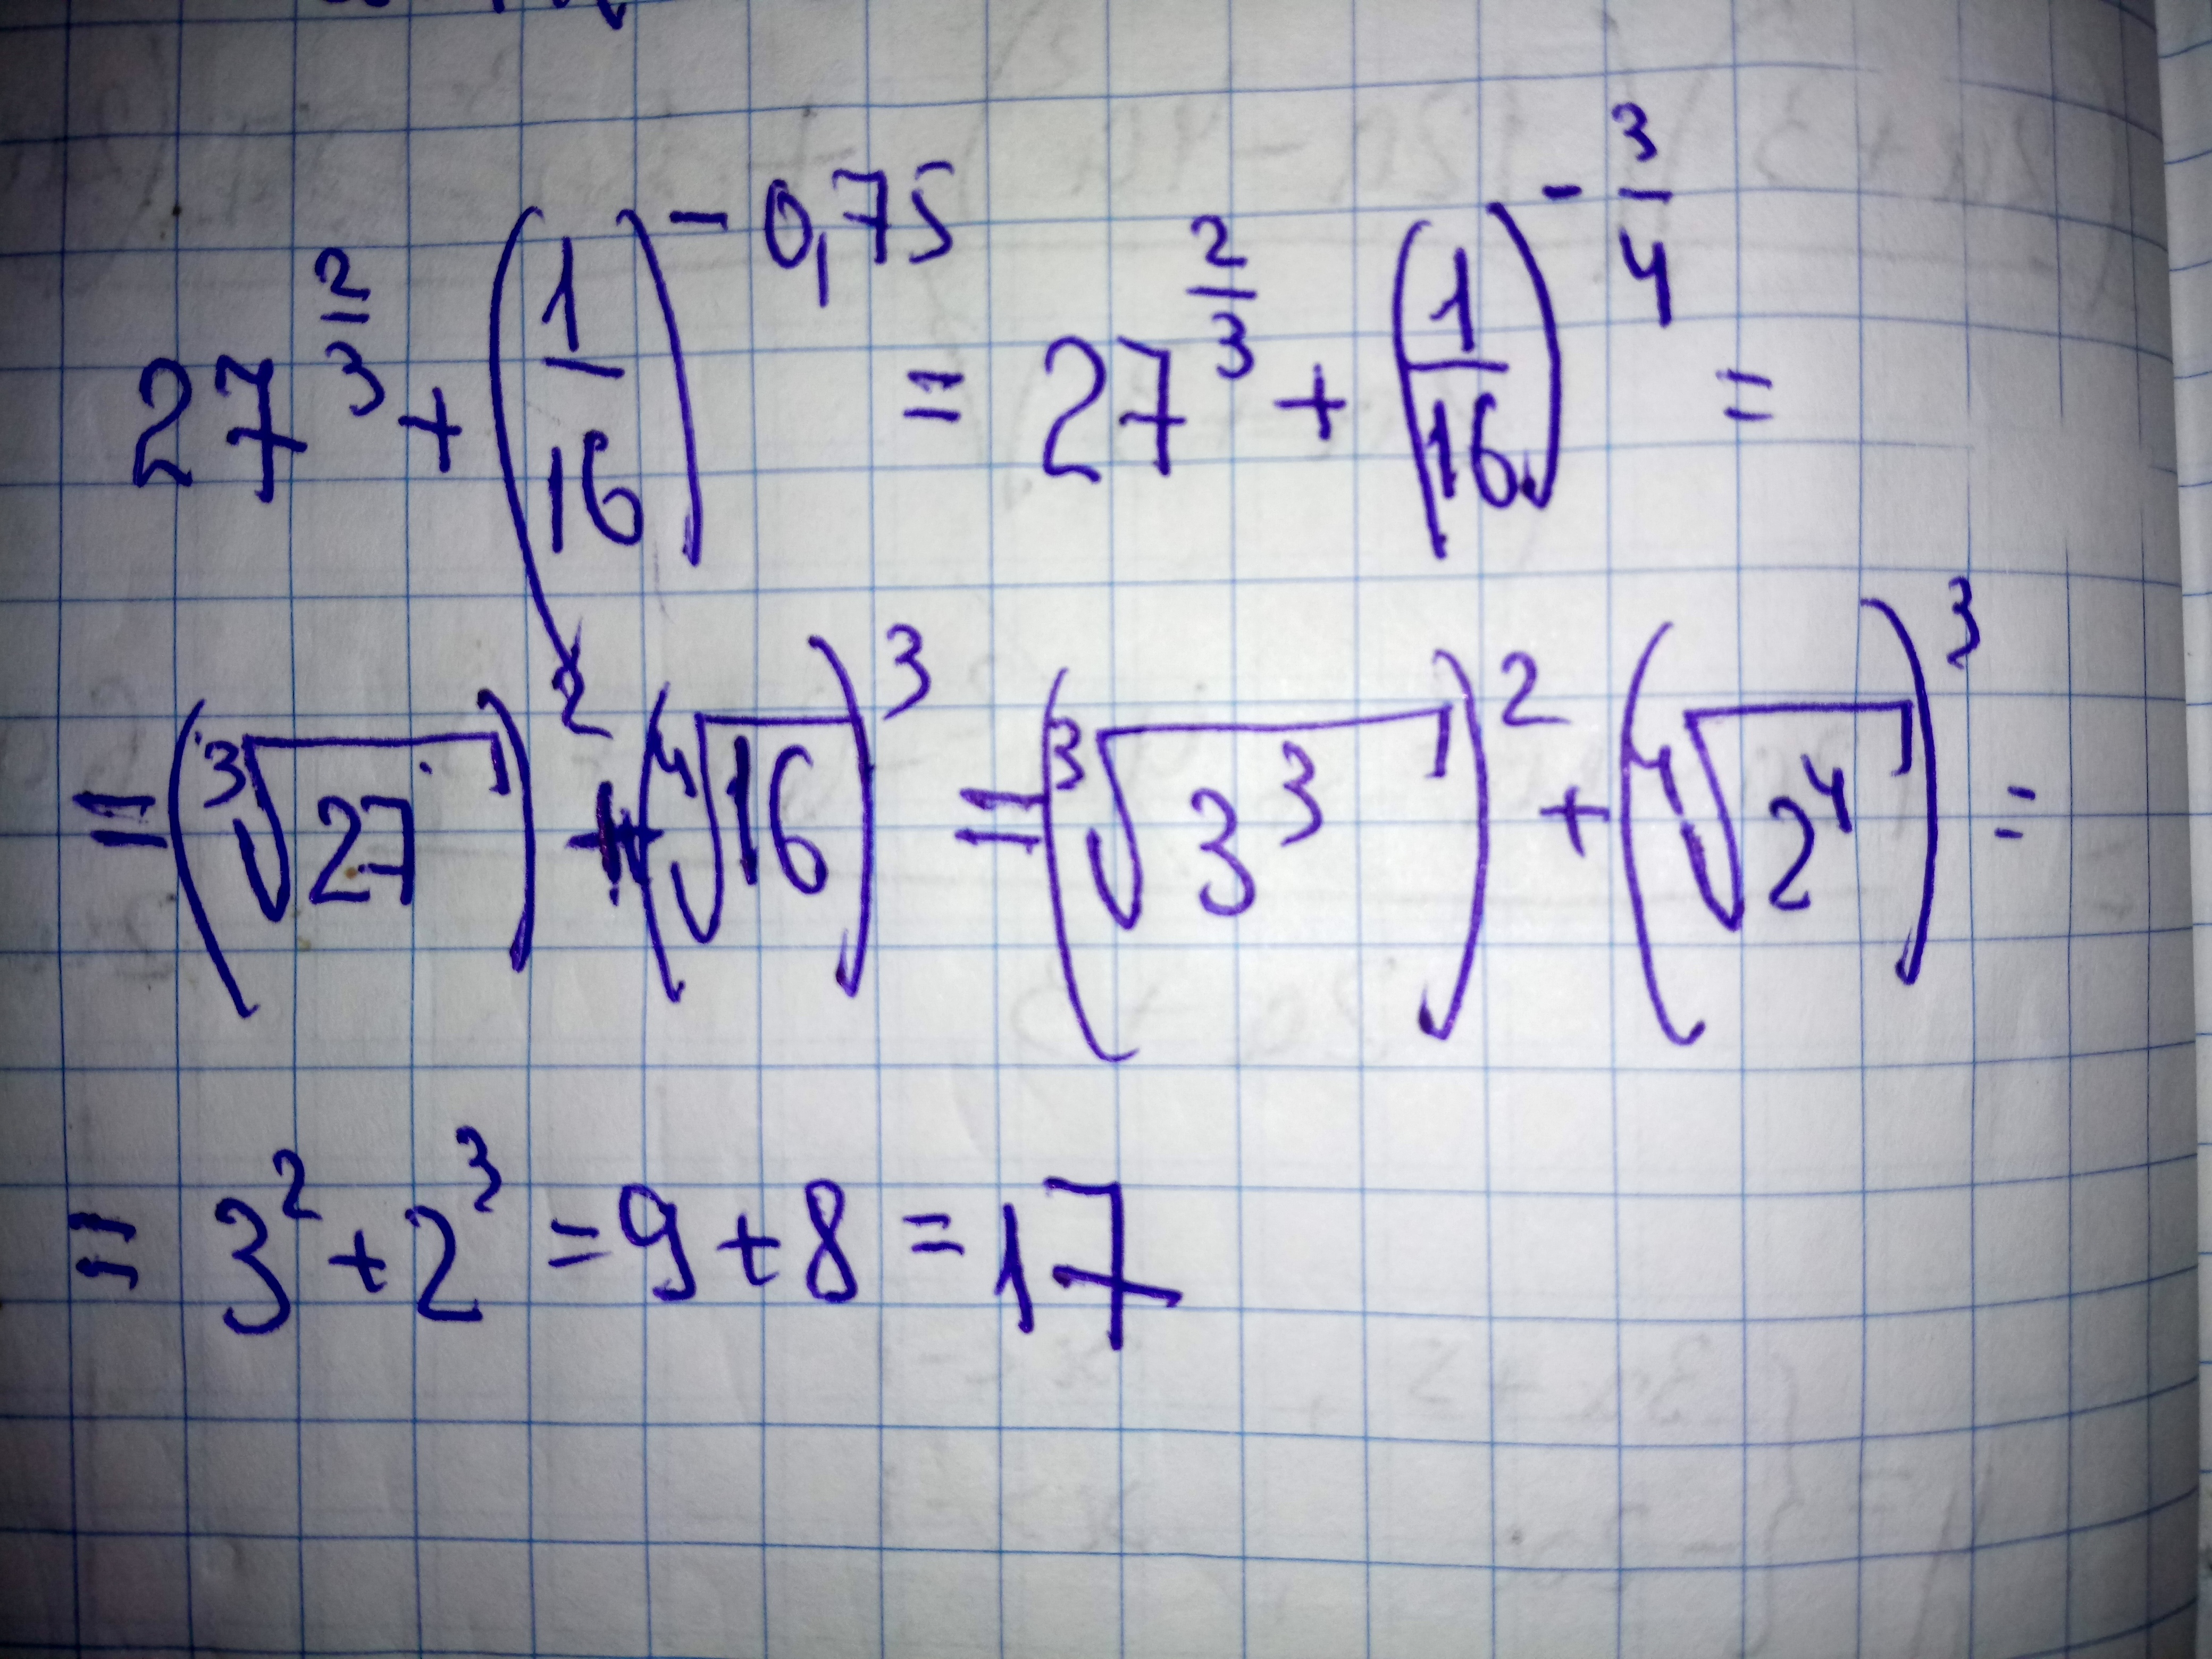 27^(2/3) + (1/16)^(-0,75) = 27^(2/3) + (1/16)^(-3/4) =
= (∛27)² + (∜16)³ = (∛3³)² + (∜2⁴)³ =
= 3² + 2³ = 9 + 8 = 17